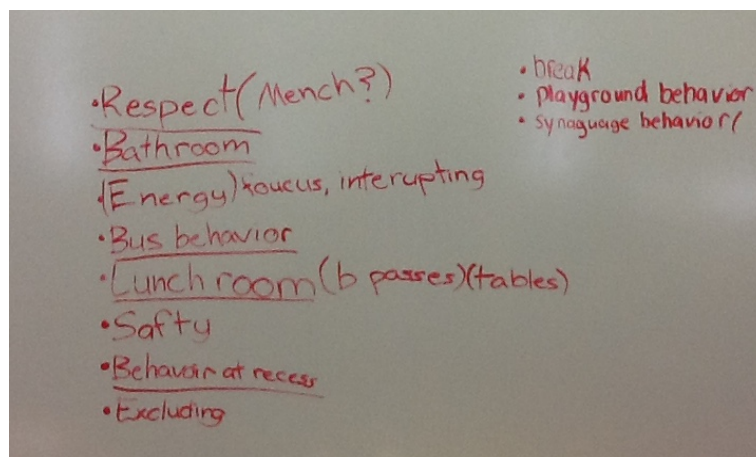 •Respect (Mench?)
•Bathroom
(Energy) foucus, interupting
•Bus behavior
•Lunch room (b passes)(tables)
•Safty
•Behavoir at recess
•Excluding
•break
•playground behavior
•synaguage behavior(